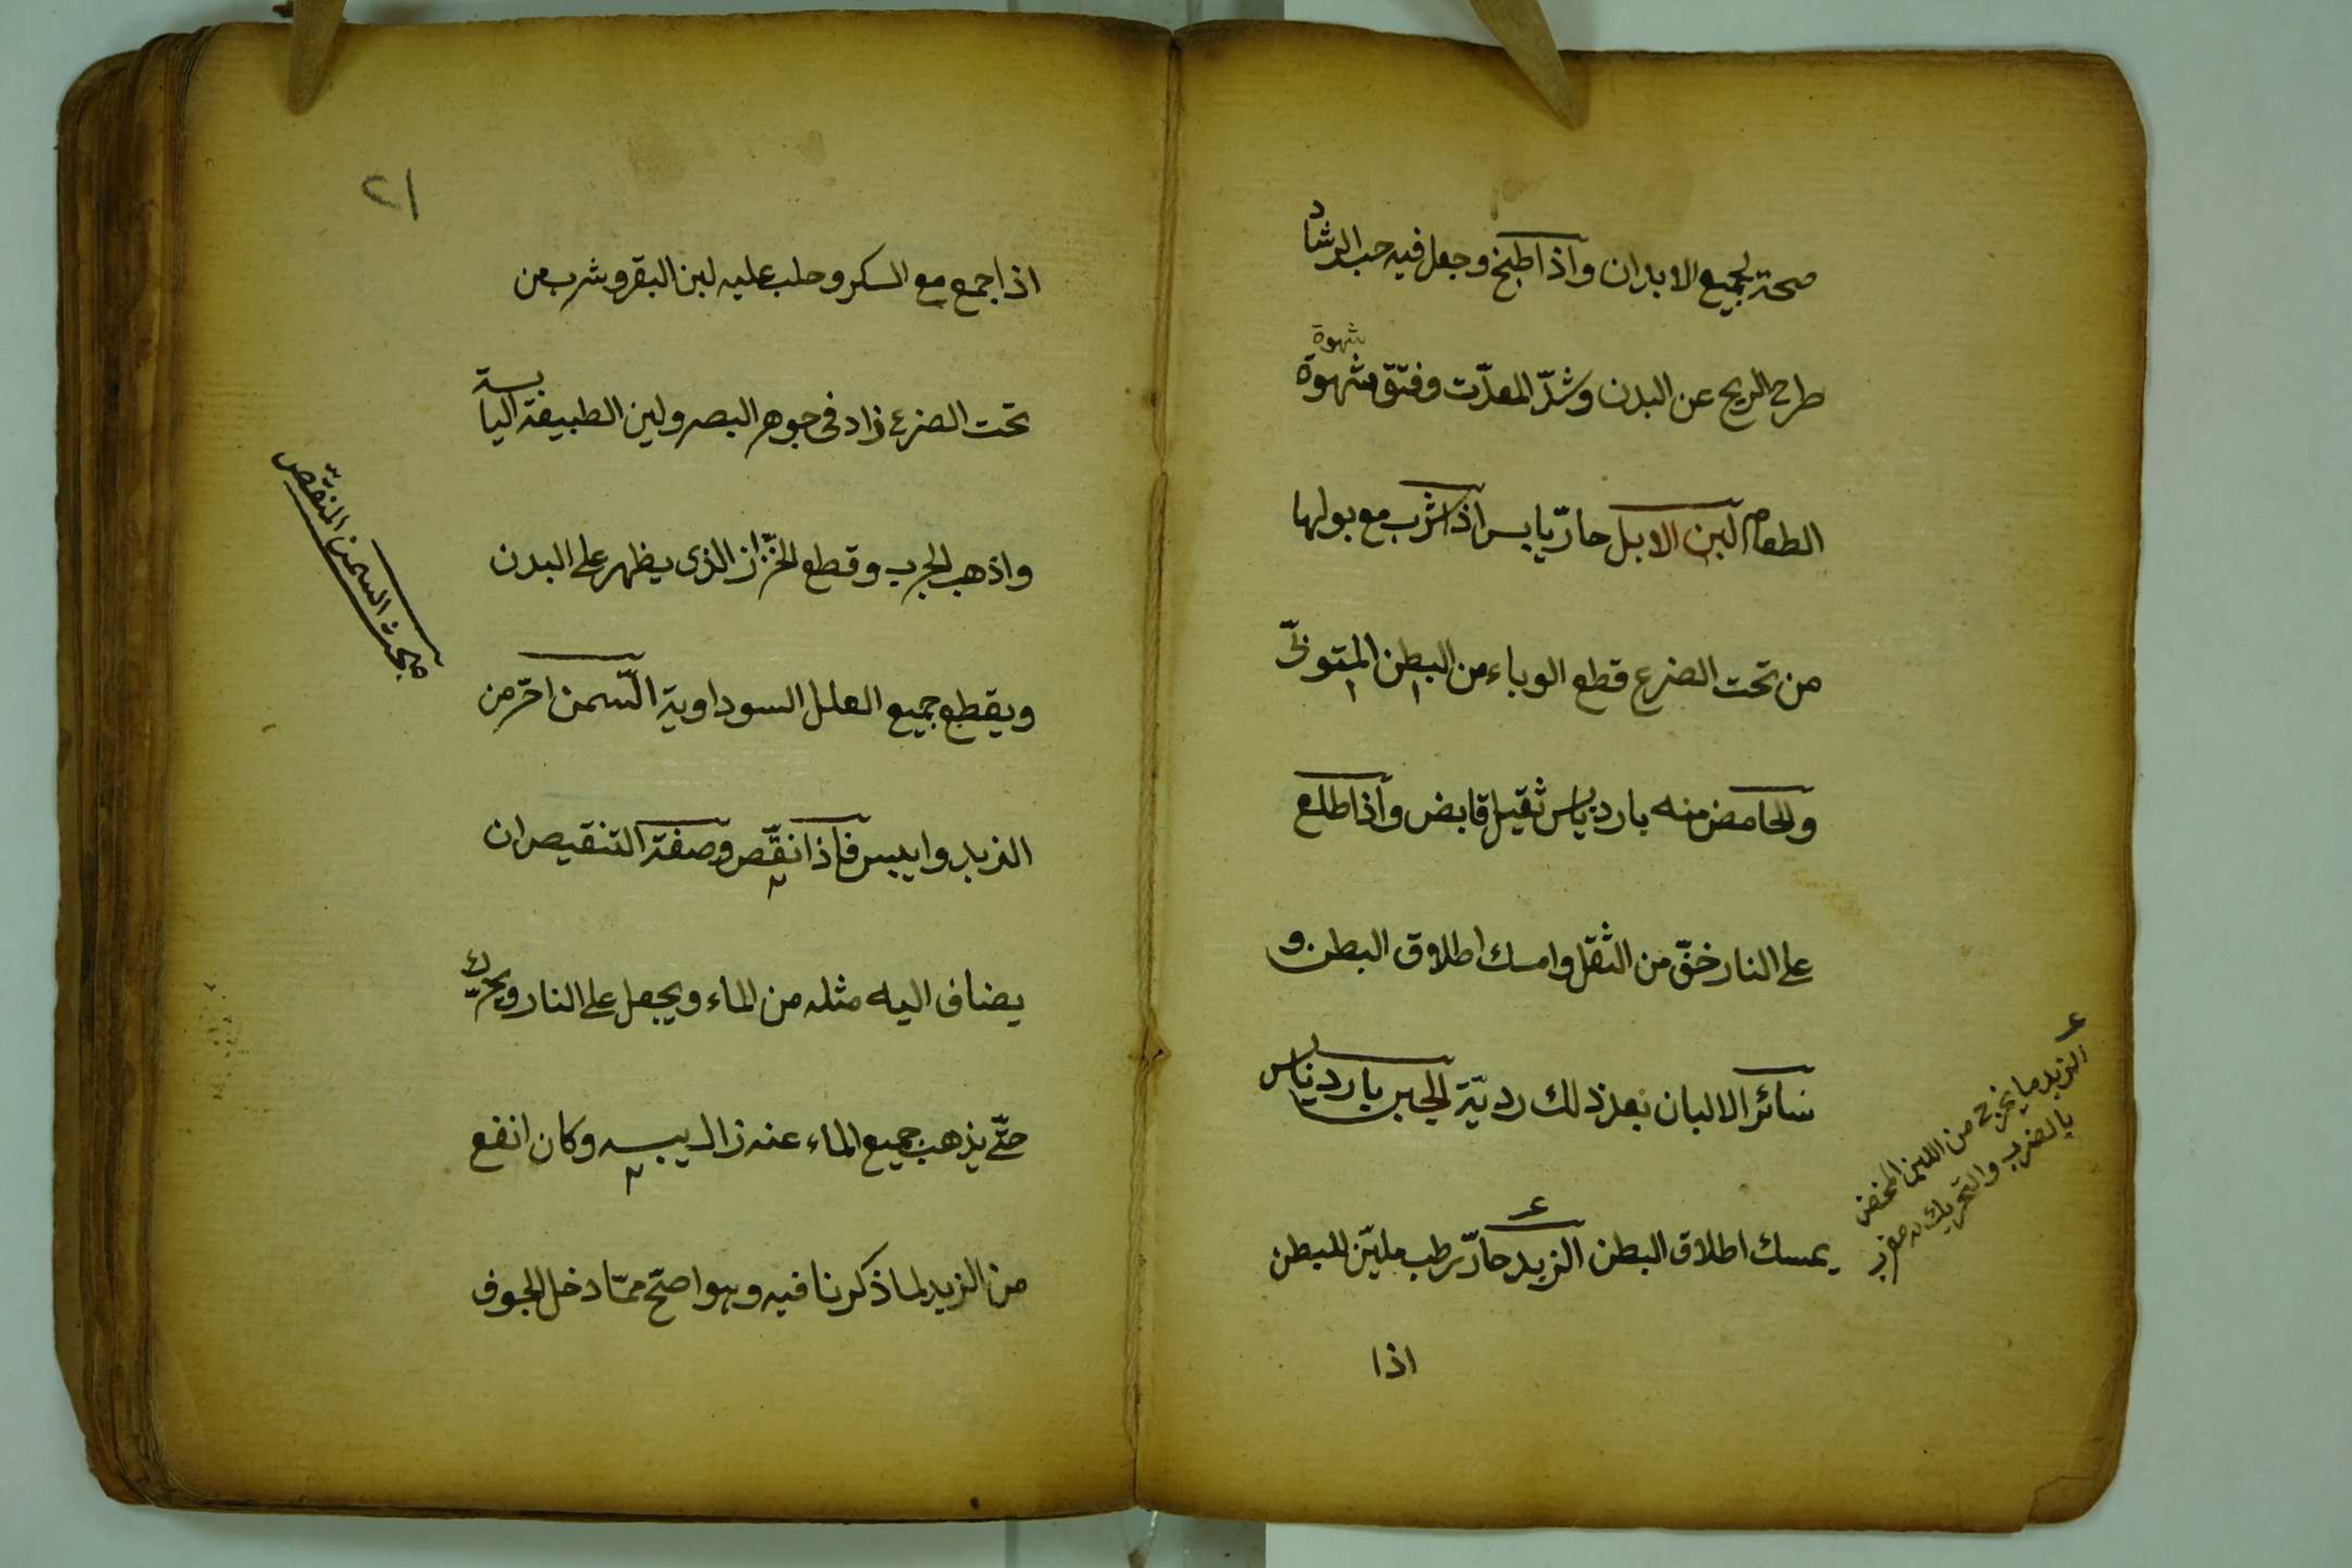 صحة لجميع الابدان واذا طبخ وجعل فيه حب الرشاد
شهوة
طرح الريح عن البدن وشدّ المعدّت وفتق شهوة
الطعام لبن الابل حارّ يابس اذا شرب مع بولها
من تحت الضرع قطع الوباء من البطن
والحامض منه بارد يابس ثقيل قابض واذا طلع
على النار خفّ من الثقل وامسك اطلاق البطن و
سائر الالبان بعد ذلك رديّة الجبن بارد يابس
يمسك اطلاق البطن الزبد حارّ رطب مليّن للبطن
اذا
ع
الزبد ما يخرج من اللبن المخض
بالضرب والتحريك
٢١
اذا جمع مع السكر وحلب عليه لبن البقر وشرب من
تحت الضرع زاد فى جوهر البصر ولين الطبيعة اليابسة
واذهب الجرب وقطع الخزّاز الذى يظهر على البدن
ويقطع جميع العلل السوداوية السّمن احرّ من
الزبد وايبس فاذا نقّص وصفة التنقيص ان
يضاف اليه مثله من الماء ويجعل على النار ويحرّك
حتّى يذهب جميع الماء عنه زال يبسه وكان انفع
من الزبد لما ذكرنا فيه وهو اصحّ ممّا دخل الجوف
بحث السمن المنقّص